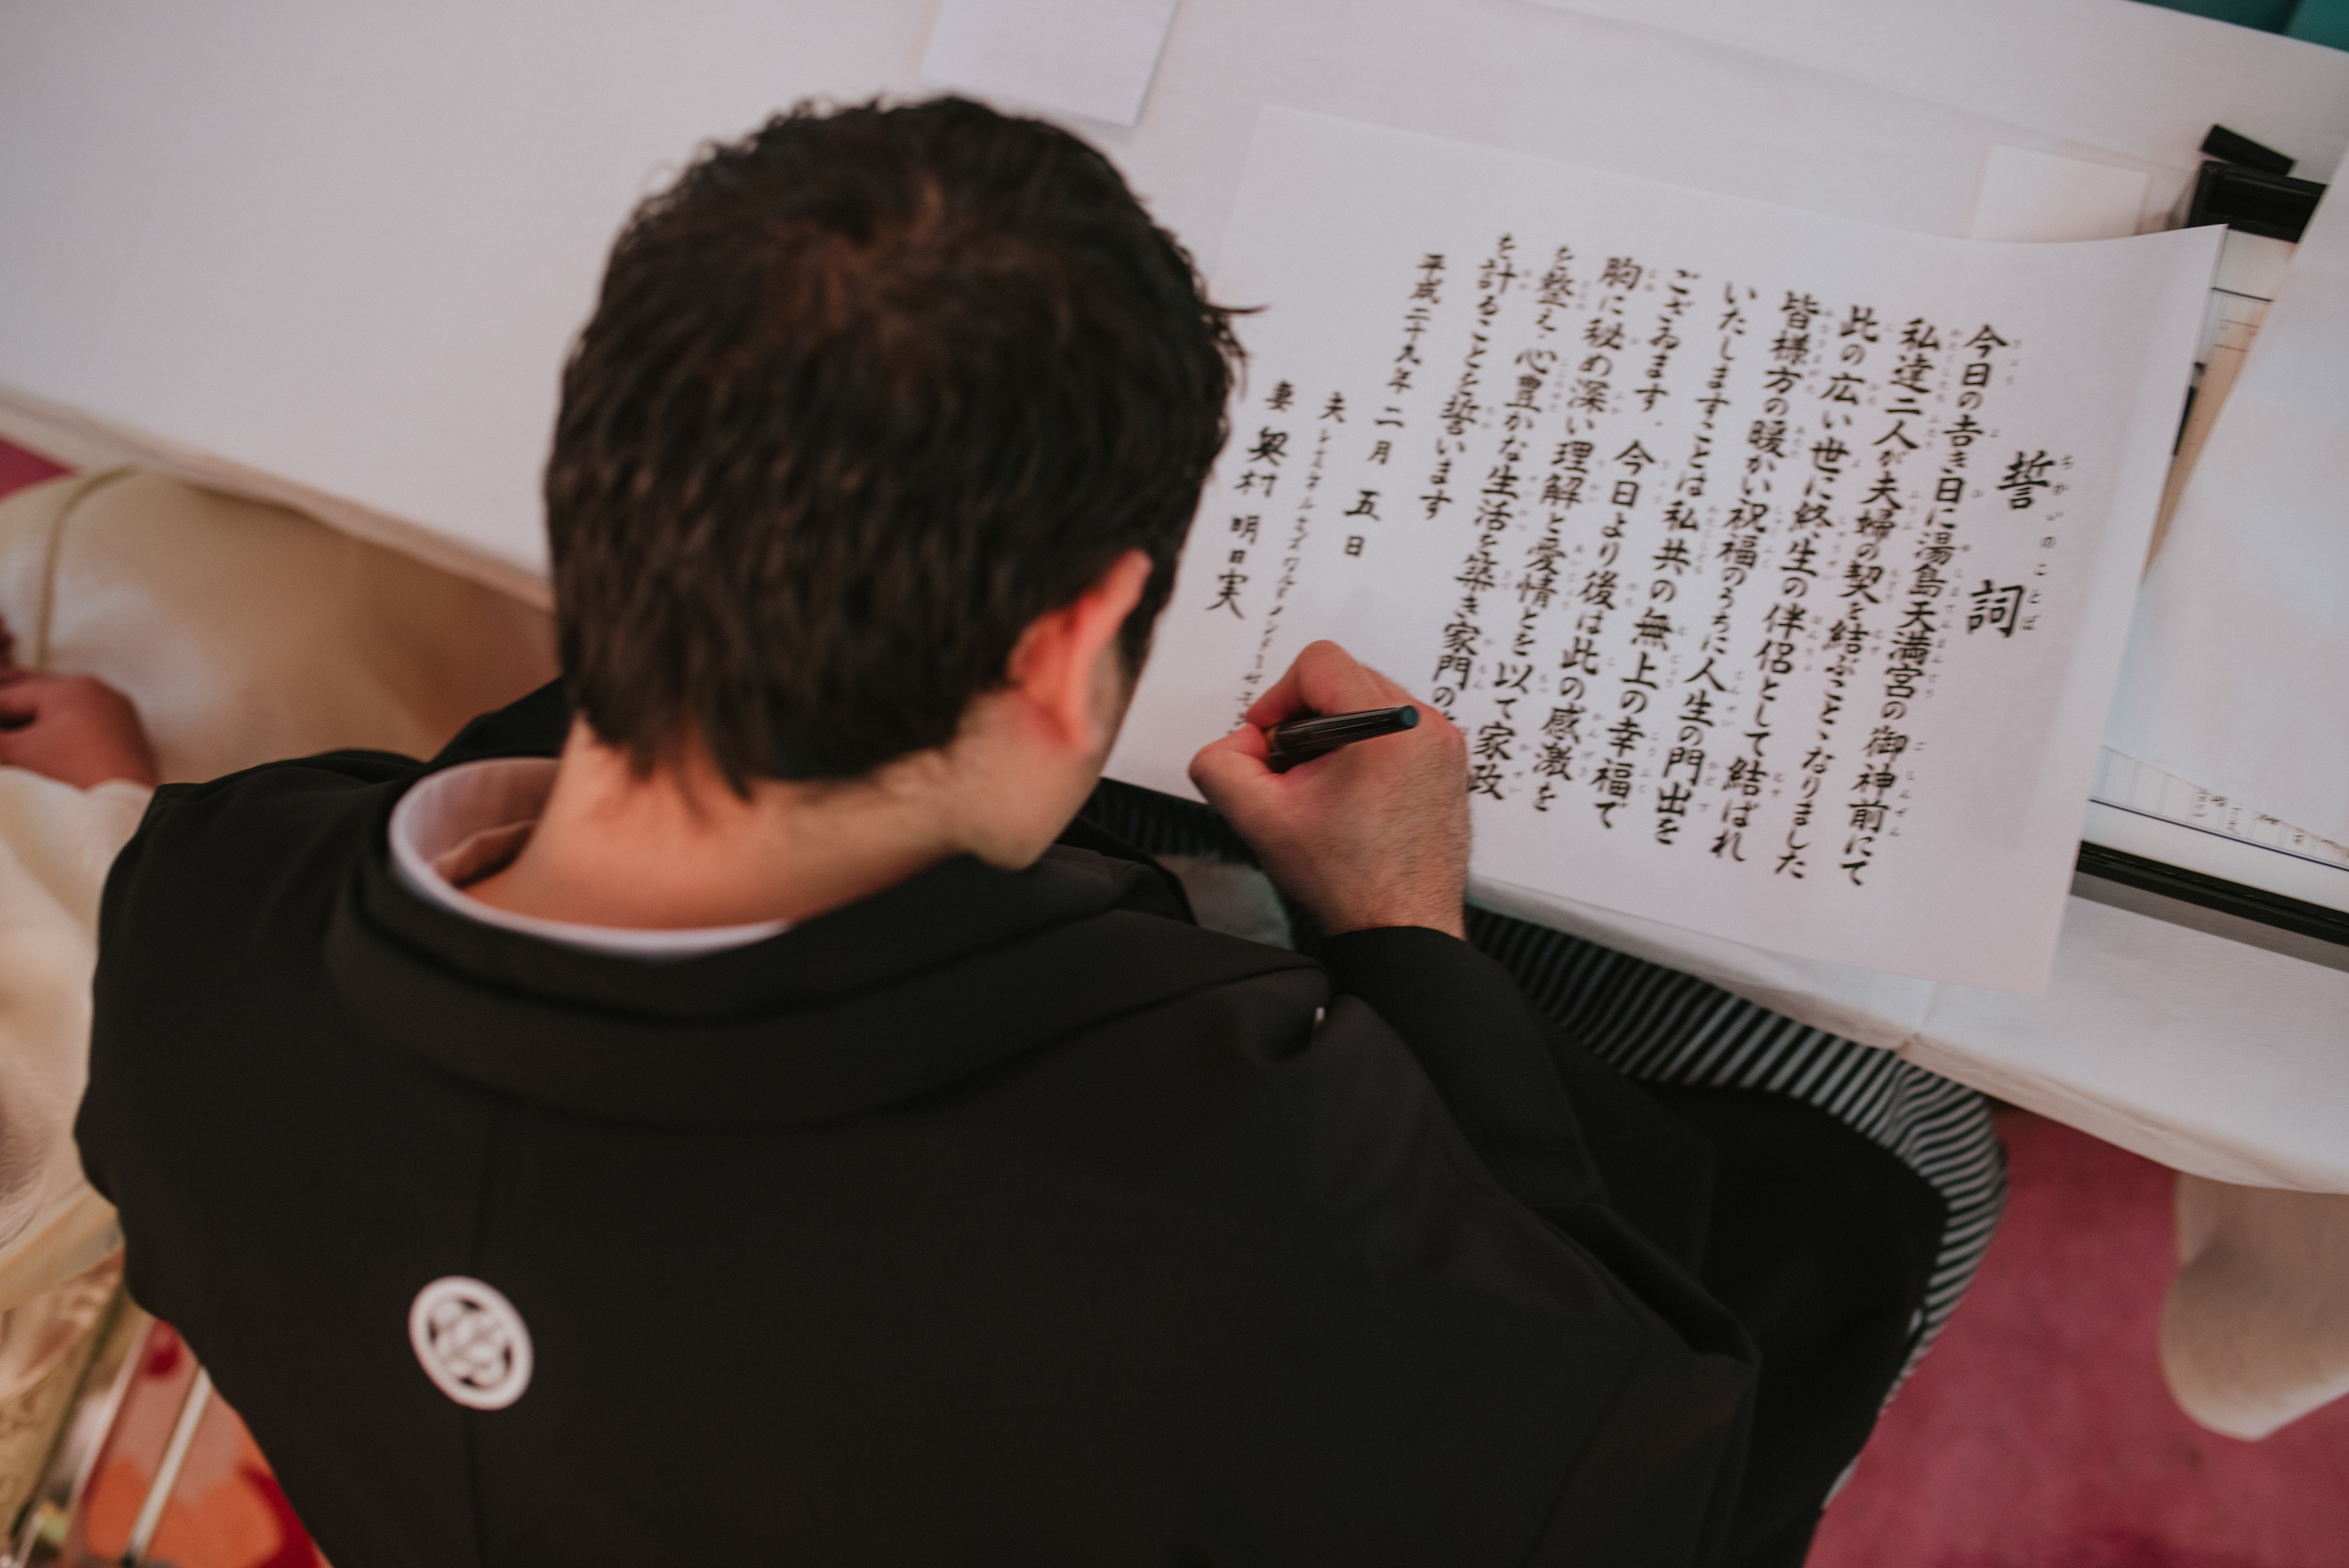 誓詞
ちかいのことば
今日の吉き日に湯島天満宮の御神前にて
私達二人が夫婦の契を結ぶことゝなりました
此の広い世に終生の伴侶として結ばれ
皆様方の暖かい祝福のうちに人生の門出を
いたしますことは私共の無上の幸福で
ございます。今日より後は此の感激を
胸に秘め深い理解と愛情とを以て家政
を整え心豊かな生活を築き家門の
を計ることを誓います
平成二十九年二月五日
夫
妻 奥村 明日実